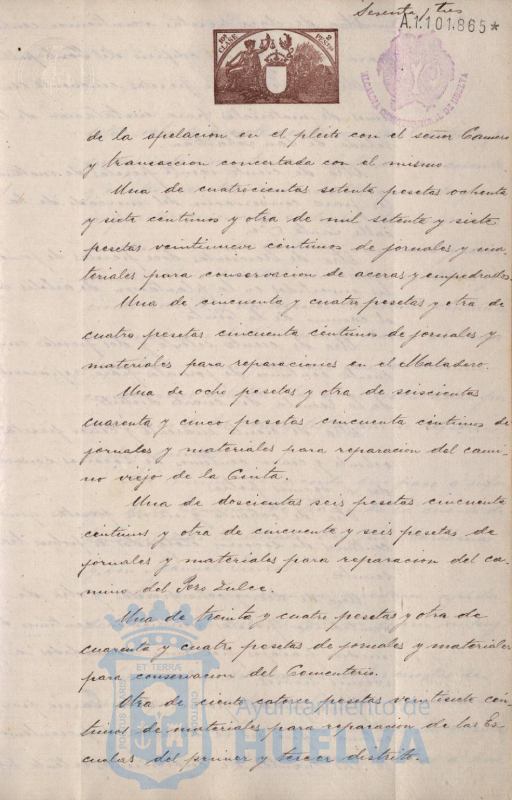 Sesenta y tres
A.1.101.865*
8ª CLASE 2 PESETAS
ALCALDIA CONSTITUCIONAL DE HUELVA
de la apelacion en el pleito con el señor Camero
y transaccion concertada con el mismo.
Una de cuatrocientas setenta pesetas ochenta
y siete céntimos y otra de mil setenta y siete
pesetas veintinueve céntimos de jornales y ma-
teriales para conservacion de aceras y empedrados.
Una de cincuenta y cuatro pesetas y otra de
cuatro pesetas cincuenta céntimos de jornales y
materiales para reparaciones en el Matadero.
Una de ocho pesetas y otra de seiscientas
cuarenta y cinco pesetas cincuenta céntimos de
jornales y materiales para reparacion del cami-
no viejo de la Cinta.
Una de doscientas seis pesetas cincuenta
céntimos y otra de cincuenta y seis pesetas de
jornales y materiales para reparacion del ca-
mino del Pozo Dulce.
Una de treinta y cuatro pesetas y otra de
cuarenta y cuatro pesetas de jornales y materiales
para conservacion del Cementerio.
Otra de ciento catorce pesetas veintisiete cén-
timos de materiales para reparacion de las Es-
cuelas del primer y tercer distrito.
PORTUS MARIS ET TERRÆ CUSTODIA
Ayuntamiento de
HUELVA